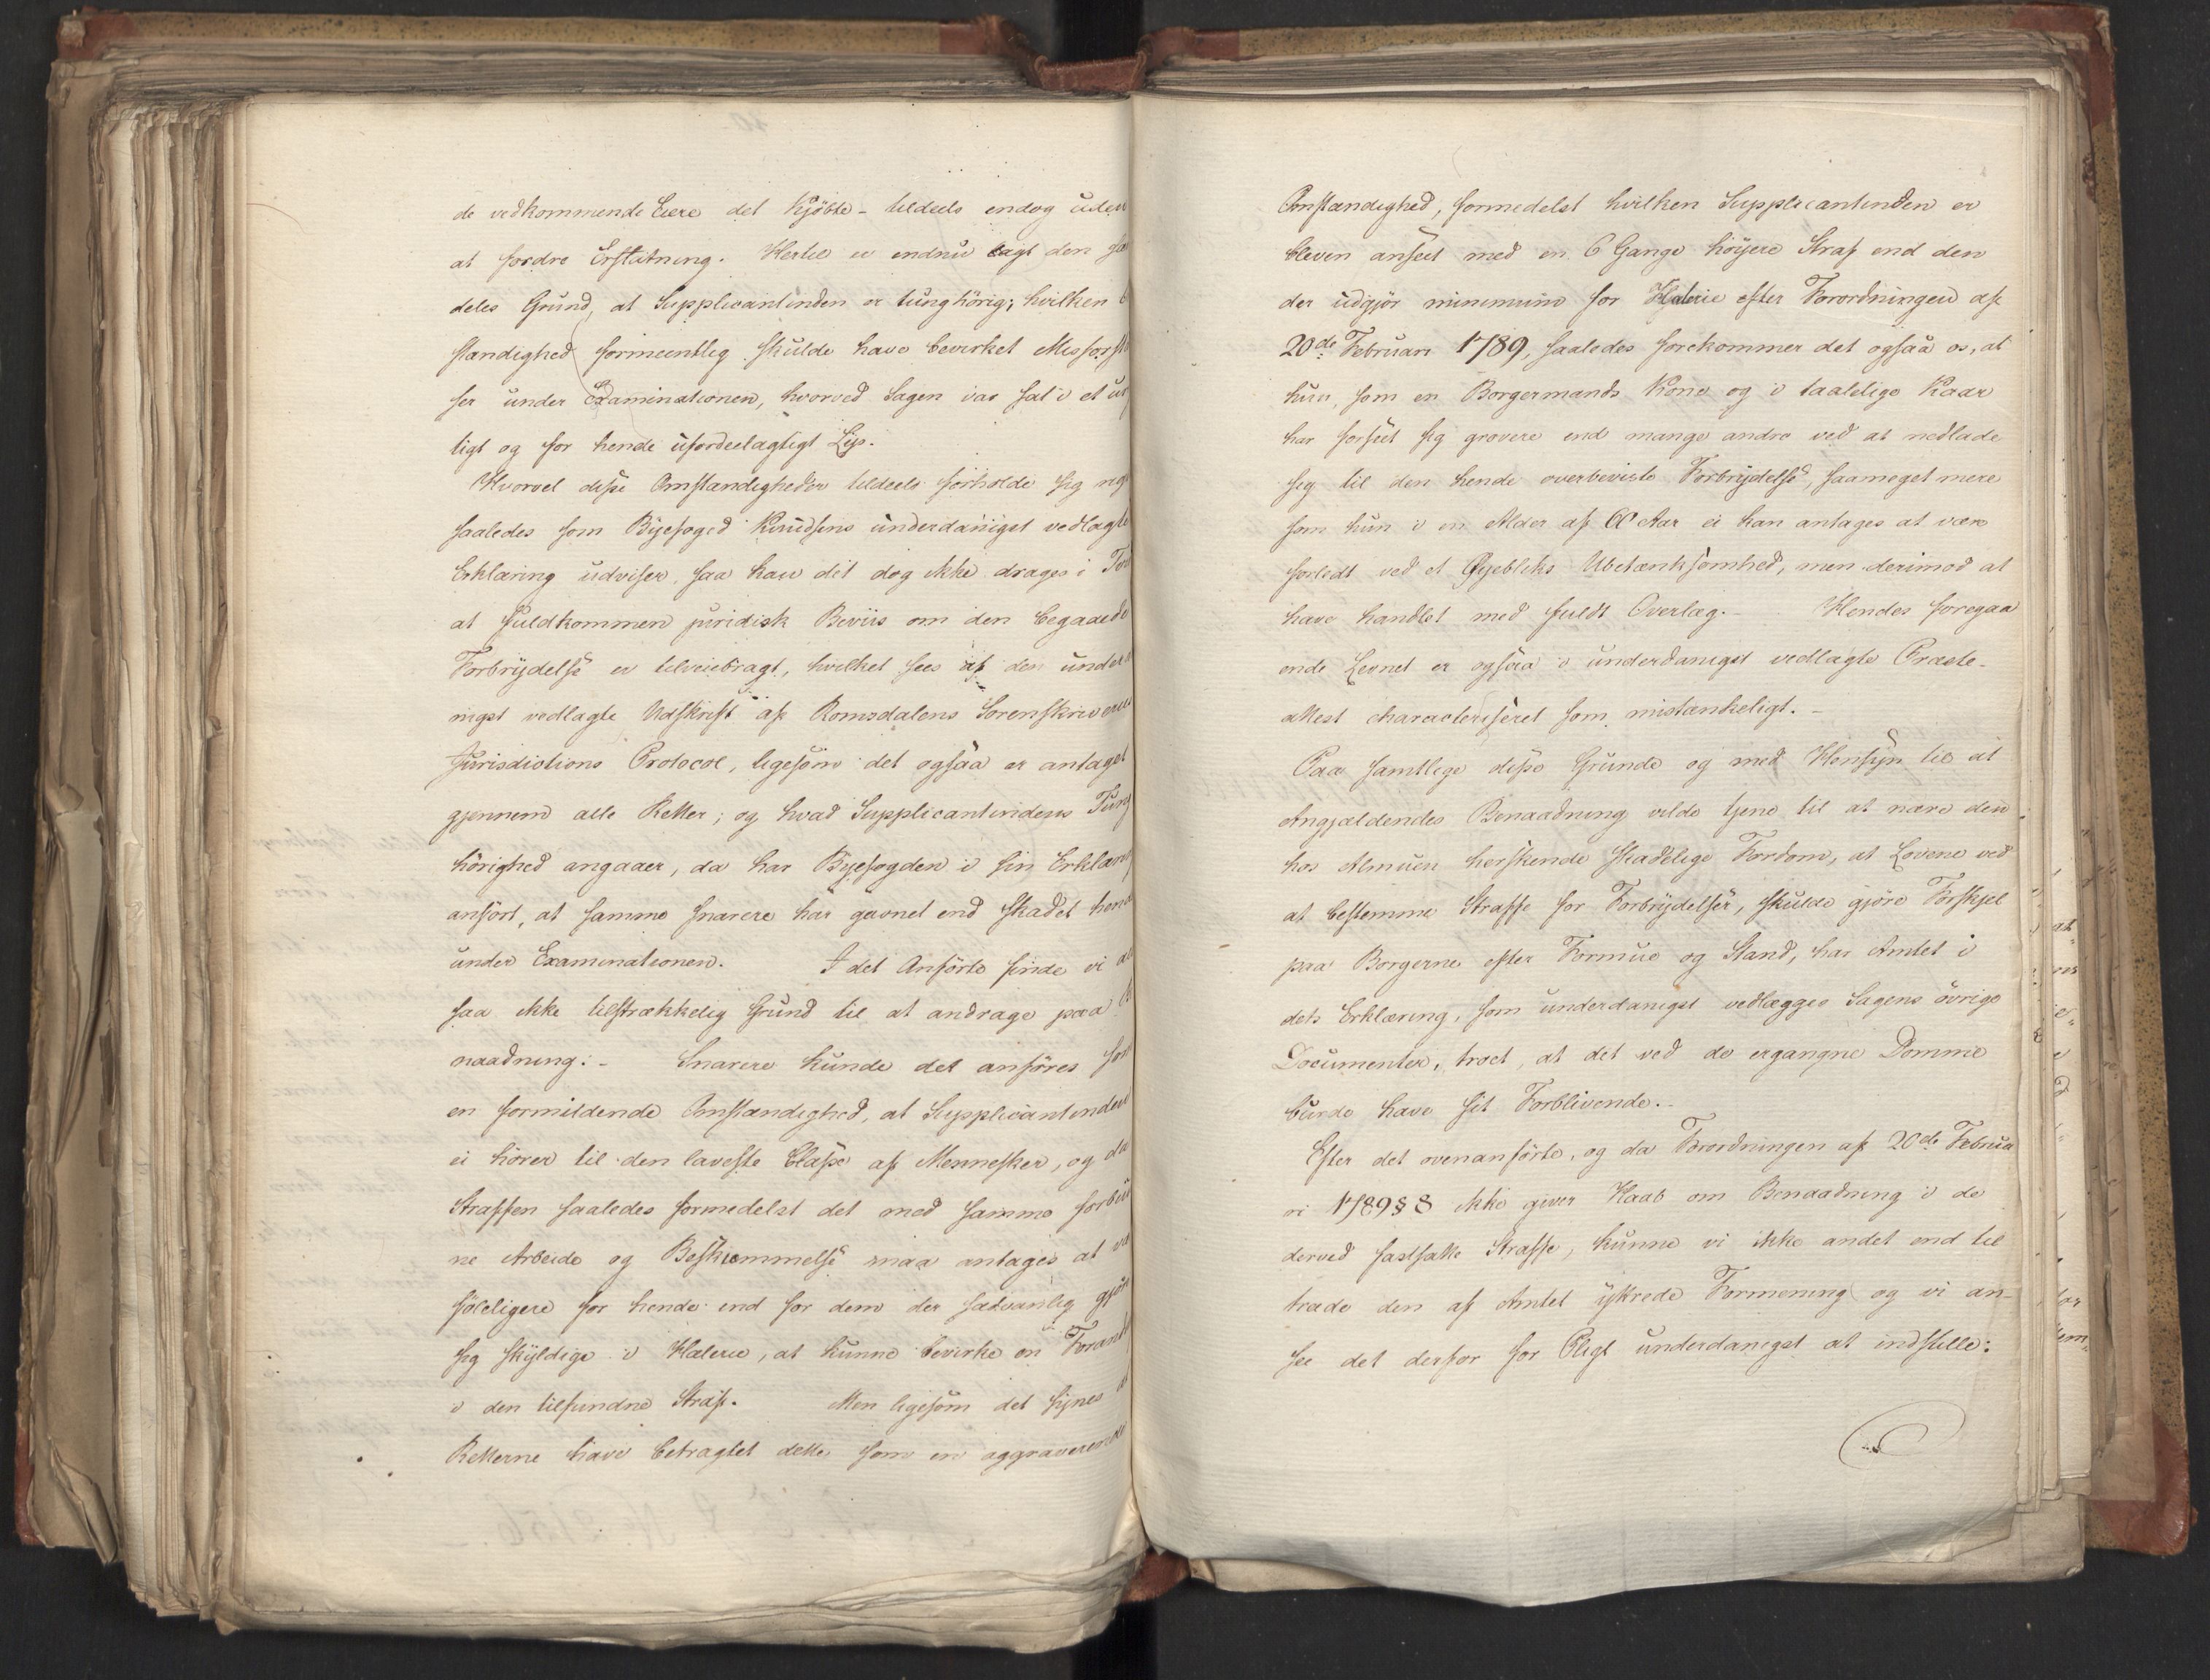 de vedkommende Eiere det Kjöbte - tildeels endog uden
at fordre Erstatning. Hertil er endnu lagt den
deles Grund, at Supplicantinden er tunghörig; hvilken
standighed formeentlig skulde have bevirket Misforst
ser under Examinationen, hvorved Sagen var sat i et
ligt og for hende ufordeelagtigt Lys.
Hvorvel disse Omstændigheder tildeels forholde sig
saaledes som Byefoged Knudsens underdanigst vedlagte
Erklæring udviser, saa kan det dog ikke drages i
at fuldkommen juridisk Beviis om den begaaede
Forbrydelse er tilveiebragt, hvilket sees af den under
nigst vedlagte Udskrift af Romsdalens Sorenskriveries
Jurisdictions Protocol, ligesom det ogsaa er antaget
gjennem alle Retter; og hvad Supplicantindens Tung
hörighed angaaer, da har Byefogden i sin Erklæring
anfört, at samme snarere har gavnet end skadet hende
under Examinationen. I det Anförte finde vi
saa ikke tilstrækkelig Grund til at andrage paa
naadning: - Snarere kunde det anföres som
en formildende Omstændighed, at Supplicantinden
ei hörer til den laveste Classe af Mennesker, og da
Straffen saaledes formedelst det med samme forbu
ne Arbeide og Beskjæmmelse maa antages at
föleligere for hende end for dem der sædvanlig gjöre
sig skyldige i Hæleri, at kunne bevirke en Forand
i den tilfundne Straf. Men ligesom det synes
Retterne have betragtet dette som en aggraverende
Omstændighed, formedelst hvilken Supplicantinden er
bleven anseet med en 6 Gange höyere Straf end den
der udgjör minimum for Hælerie efter Forordningen af
20de Februari 1789, saaledes forekommer det ogsaa os, at
hun, som en Borgermands Kone og i taalelige Kaar
har forseet sig grovere end mange andre ved at nedlade
sig til den hende overbeviste Forbrydelse, saameget mere
som hun i en Alder af 60 Aar ei kan antages at være
forledt ved et Öyebliks Ubetænksomhed, men derimod at
have handlet med fuldt Overlæg. - Hendes foregaa
ende Levnet er ogsaa i underdanigst vedlagte Præste-
attest characteriseret som mistænkeligt. -
Paa samtlige disse Grunde og med Hensyn til at
Angjældendes Benaadning vilde tjene til at nære den
hos Almuen herskende skadelige Fordom, at Lovene ved
at bestemme Straffe for Forbrydelser, skulde gjöre Forskjel
paa Borgerne efter Formue og Stand, har Amtet i
dets Erklæring, som underdanigst vedlægges Sagens övrige
Documenter, troet, at det ved de ergangne Domme
burde have sit Forblivende. -
Efter det ovenanförte, og da Forordningen af 20de Februa
ri 1789 § 8 ikke giver Haab om Benaadning i de
derved fastsatte Straffe, kunne vi ikke andet end til
træde den af Amtet yttrede Formening og vi an-
see det derfor for Pligt underdanigst at indstille: